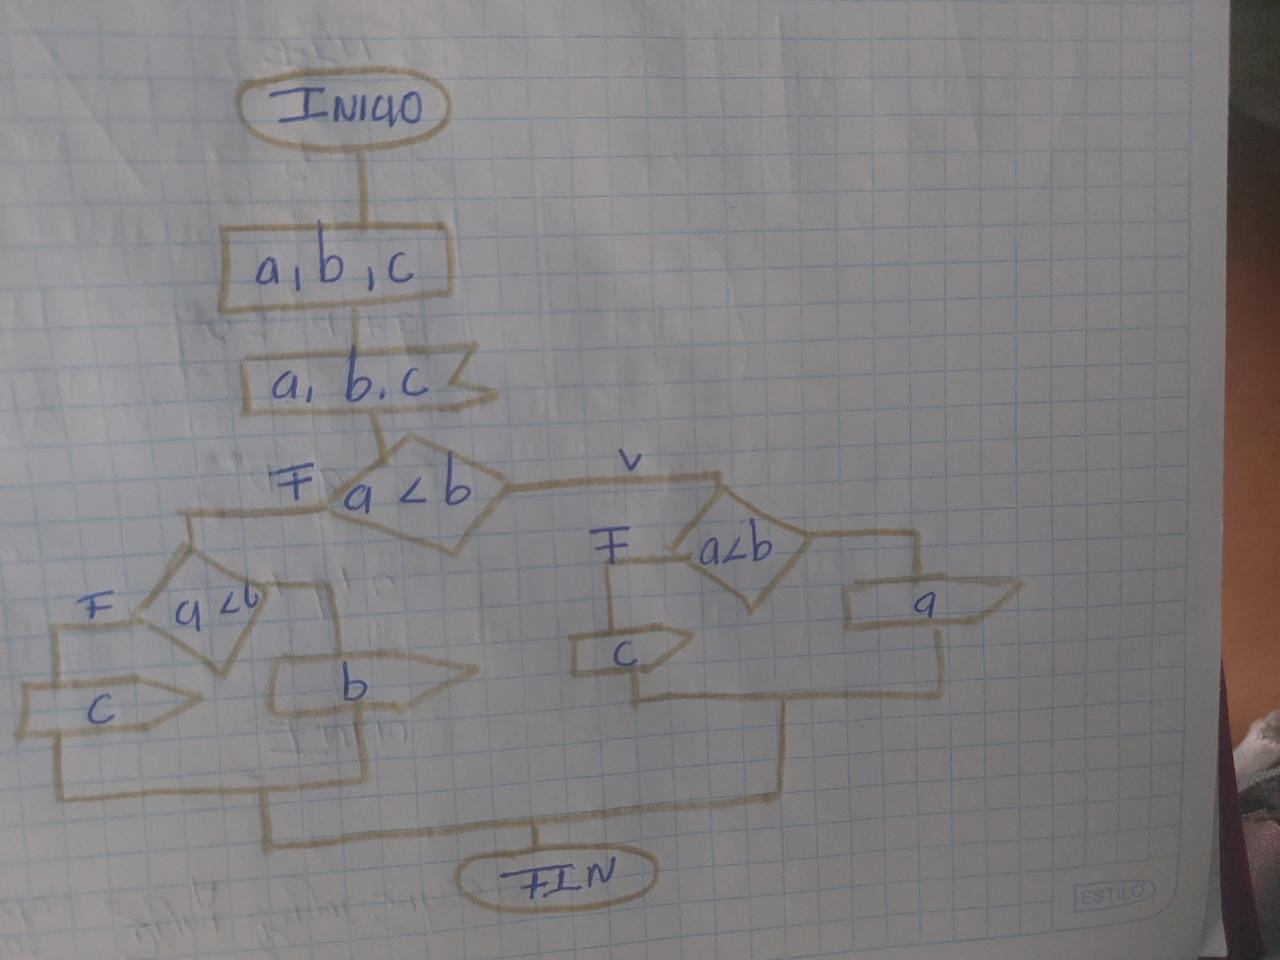 INICIO
a, b, c
a, b, c
F a < b V
F a<b
F a<b
c
a
c
b
FIN
ESTILO